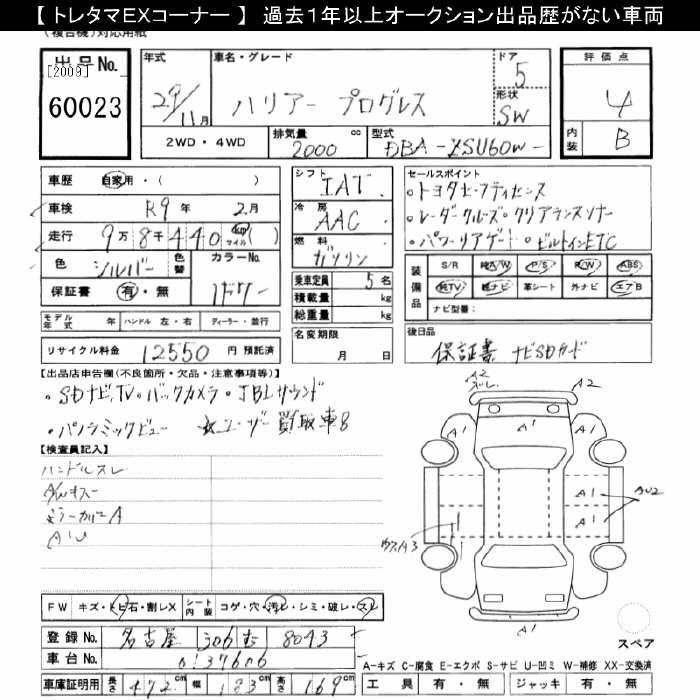 【 トレタマEXコーナー 】 過去1年以上オークション出品歴がない車両
(複合機)対応用紙
出品No.
[2009]
60023
年式
29/11月
車名・グレード
ハリアー プログレス
ドア
5
形状
SW
評価点
4
内装
B
2WD・4WD
排気量
2000
cc
型式
DBA-ZSU60W-
車歴
自家用・( )
車検
R9年 2月
走行
9万8千440 km マイル ( )
色
シルバー
色替
カラーNo.
保証書
有・無
モデル年式
年
ハンドル
左・右
ディーラー・並行
リサイクル料金
12550
円 預託済
シフト
IAT
冷房
AAC
燃料
ガソリン
乗車定員
5名
積載量
kg
総重量
kg
名変期限
月 日
セールスポイント
・トヨタセーフティセンス
・レーダークルーズ・クリアランスソナー
・パワーリアゲート・ビルトインETC
装備品
S/R 純A/W P/S P/W ABS
純TV 純ナビ 革シート 外ナビ エアB
ナビ型番:
後日品
保証書 ナビSDカード
【出品店申告欄(不良箇所・欠品・注意事項等)】
・SDナビ,TV・バックカメラ・JBLサウンド
・パノラミックビュー ★ユーザー買取車8
【検査員記入】
ハンドルスレ
A/Wキズ
ミラーカバーA
AU
A2
A2
A1
A1
A1
A1
A1
AU2
A1
A1
FW
キズ・トビ石・割レX
シート内装
コゲ・穴・汚レ・シミ・破レ・スレ
登録No.
名古屋 306 む 8043
車台No.
0137606
車庫証明用
長さ
472
cm
幅
183
cm
高さ
169
cm
スペア
A-キズ C-腐食 E-エクボ S-サビ U-凹ミ W-補修 XX-交換済
工具 有・無 ジャッキ 有・無